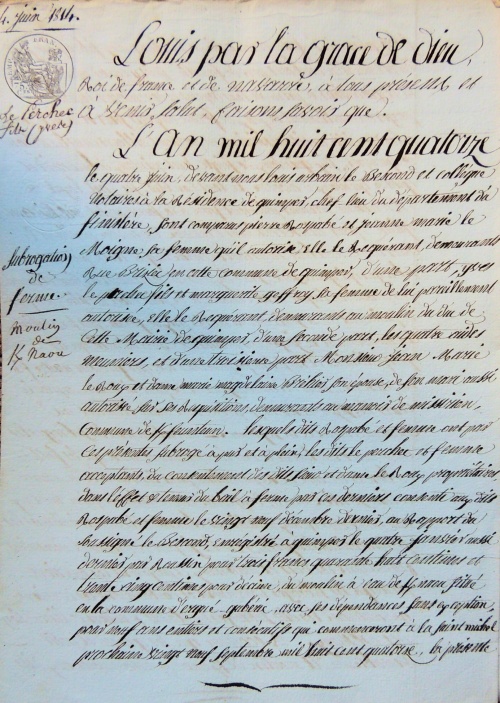 4. juin 1814.
Louis par la grace de dieu,
Roi de france et de navarre, à tous présent et
à venir, salut. faisons savoir que.
Le Perchec
fils (yves)
L'An mil huit cent quatorze
le quatre juin, devant nous louis urbain le Bescond et collègue
Notaires à la Résidence de quimper, chef lieu du département du
finistère, sont comparus pierre Rospabé et jeanne marie le
Moigne, sa femme qu'il autorise, elle le Requérant, demeurants
Rue en cette commune de quimper, d'une part, yves
Subrogation
de
ferme
le perchec fils et marguerite geffroy, sa femme de lui pareillement
autorisée, elle le Requérant, demeurants au moulin du duc de
Moulin
de
St Naou
Cette Mairie de quimper, d'une seconde part, les quatre
meuniers, et d'une troisième part Monsieur jean Marie
le Rouge et dame marie magdelaine son épouse, de son mari aussi
autorisée sur ses Réquisitions, demeurants au manoir de
Commune de lesquels dits Rospabé et femme ont par
Ces présentes subrogé à pur et à plein, les dits le perchec et femme
acceptants, du consentement des dits sieur et dame le Rouge propriétaires,
dans l'effet et teneur du bail à ferme par ces derniers consenti aux dits
Rospabé et femme le vingt neuf décembre dernier, au Rapport du
Soussigné le Bescond, enregistré à quimper le quatre janvier aussi
dernier par pour trois francs quarante huit centimes et
trente cinq centimes pour décime, du moulin à eau de St naou situé
en la commune d'ergué gabéric, avec ses dépendances sans exception
pour neuf ans entiers et consécutifs qui commenceront à la saint michel
prochaine vingt neuf septembre mil huit cent quatorze, la présente